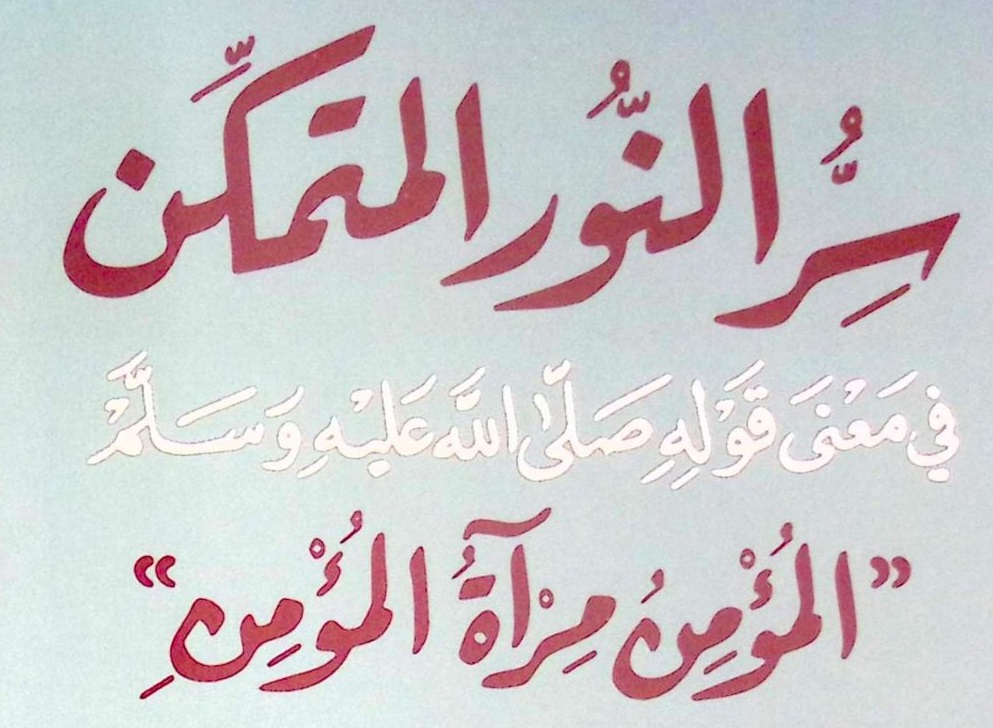 سِرُّ النُّور المتمكِّن
في مَعْنَى قَوْلِهِ صَلَّى اللَّه عَلَيْهِ وَسَلَّمْ
”المُؤْمِنُ مِرْآةُ المُؤْمِنِ“